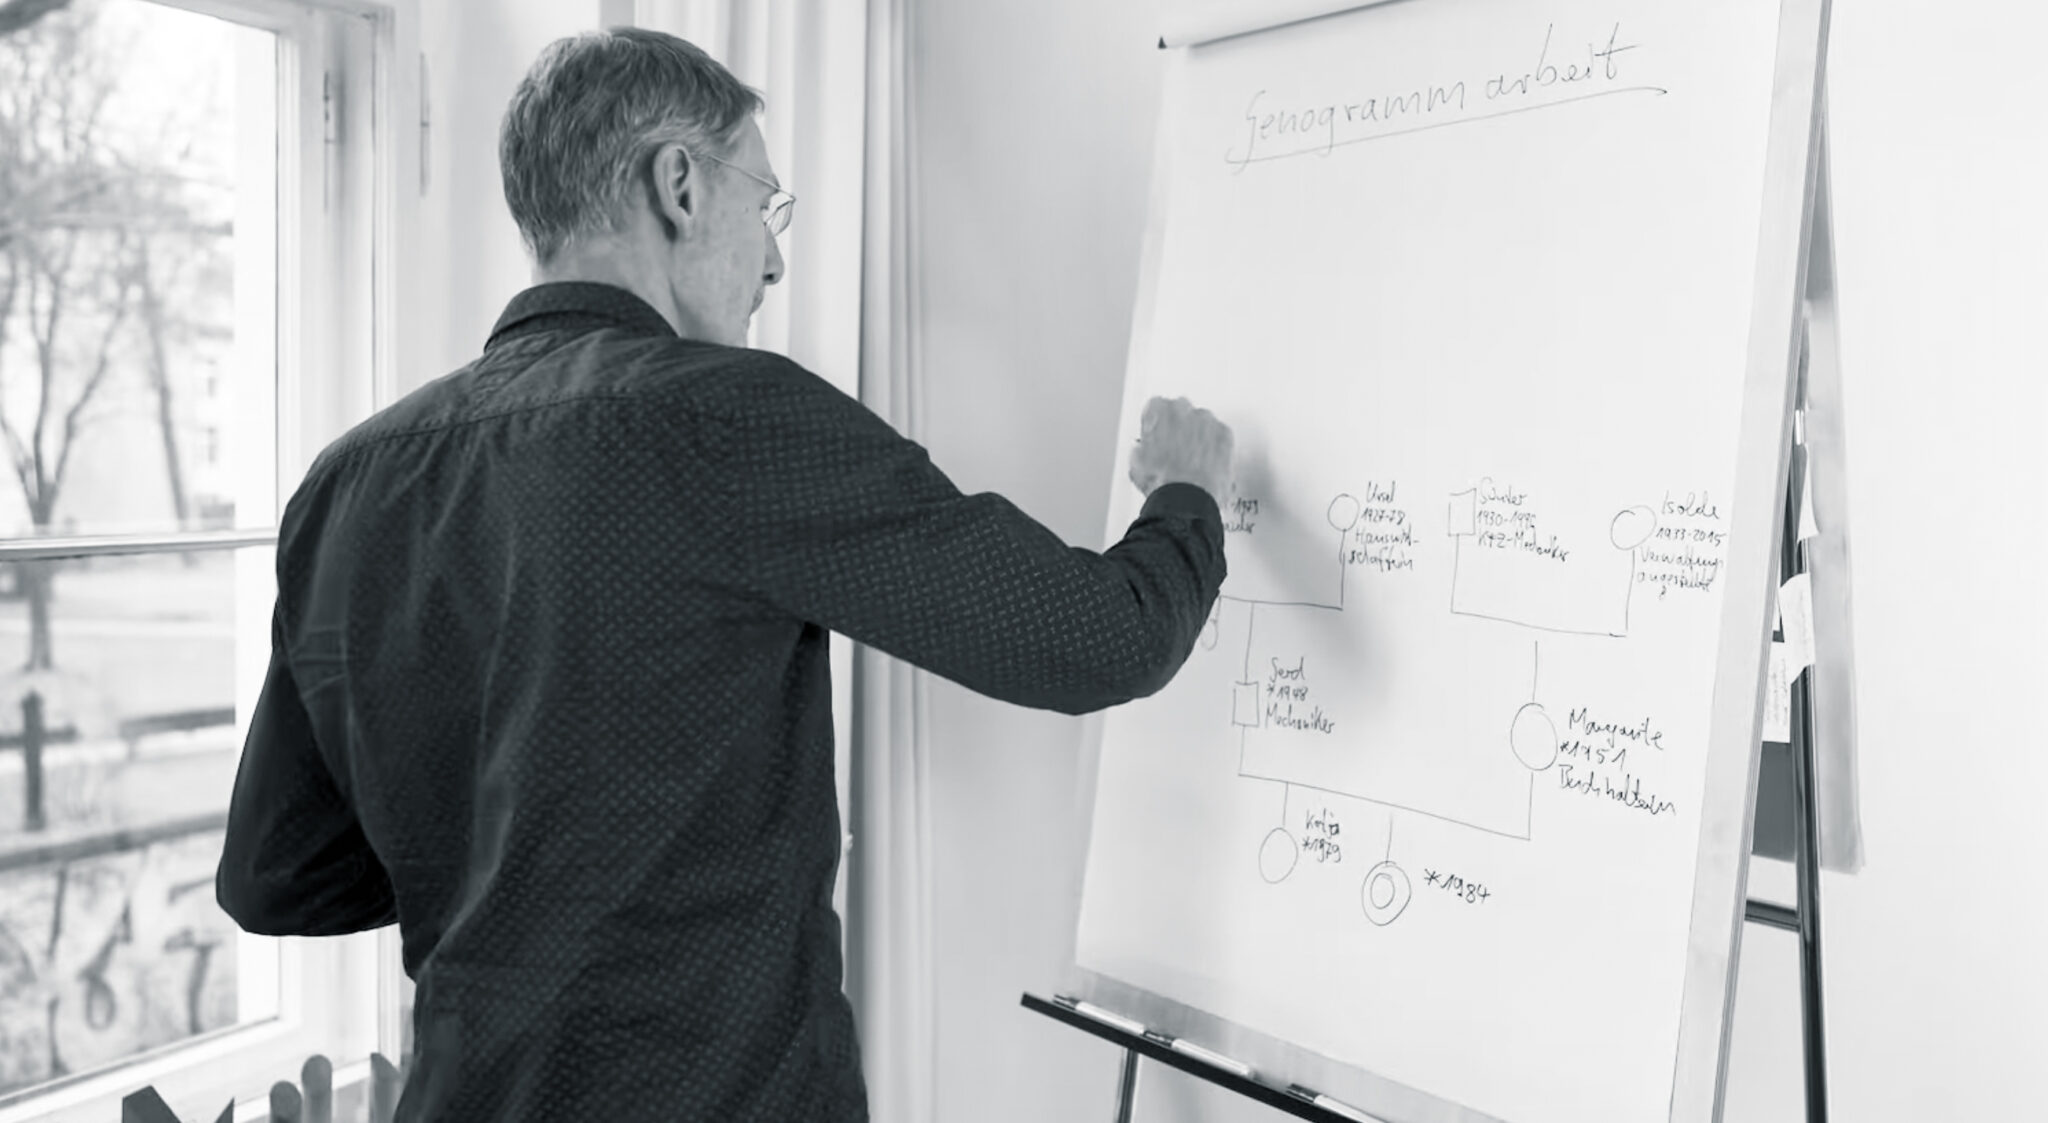 Genogrammarbeit
-1979
Ursel
1927-78
Hauswirt-
schafterin
Günter
1930-1995
KFZ-Mechaniker
Isolde
1933-2015
Verwaltungs
angestellte
Gerd
*1948
Mechaniker
Margarite
*1951
Buchhalterin
Katja
*1979
*1984